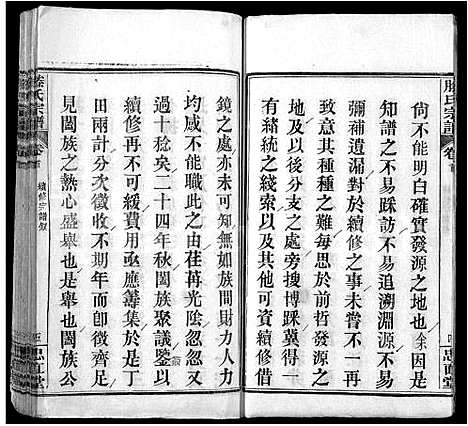 滕氏宗譜
卷首
四
忠直堂
尚不能明白確實發源之地也余因是
知譜之不易踩訪不易追溯淵源不易
彌補遺漏對於續修之事未嘗不一再
躊躇也以譜修之難每思於發源之
地以及後分支之處旁搜博踩冀得一
有緒統之綫索以資續修借
鏡之處亦未可知無如族間財力人力
均感不能大職此之由荏苒光陰忽忽又
過十稔矣二十四年秋闔族聚議鑒以
續修再不可緩費用亟應籌集於是丁
田兩計分次徵收不期年而卽徵齊更
見闔族之熱心盛舉也是舉也闔族公
滕氏宗譜
卷首
續修宗譜叙